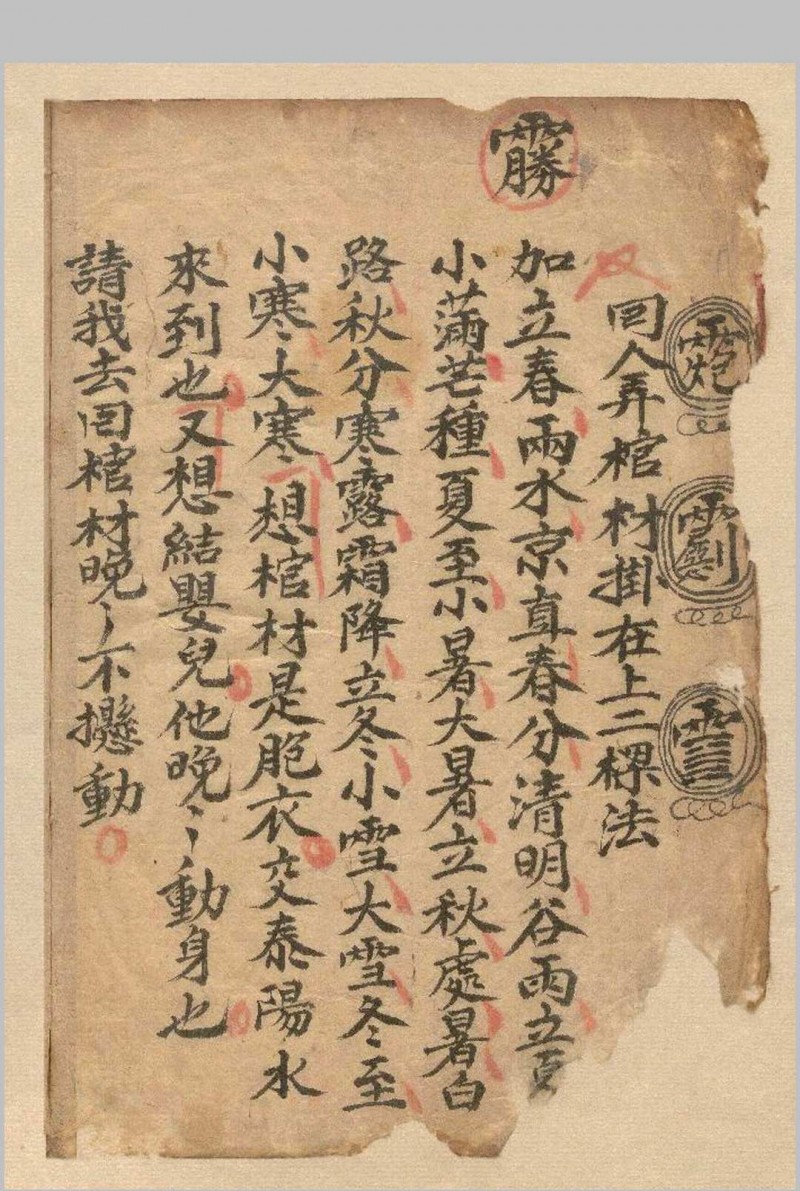 又
囘人弄棺材掛在上二櫟法
加立春雨水京直春分清明谷雨立夏
小滿芒種夏至小暑大暑立秋處暑白
路秋分寒露霜降立冬小雪大雪冬至
小寒大寒想棺材是胞衣交泰陽水
來到也又想結嬰兒他晚〻動身也
請我去囘棺材晚〻不攇動